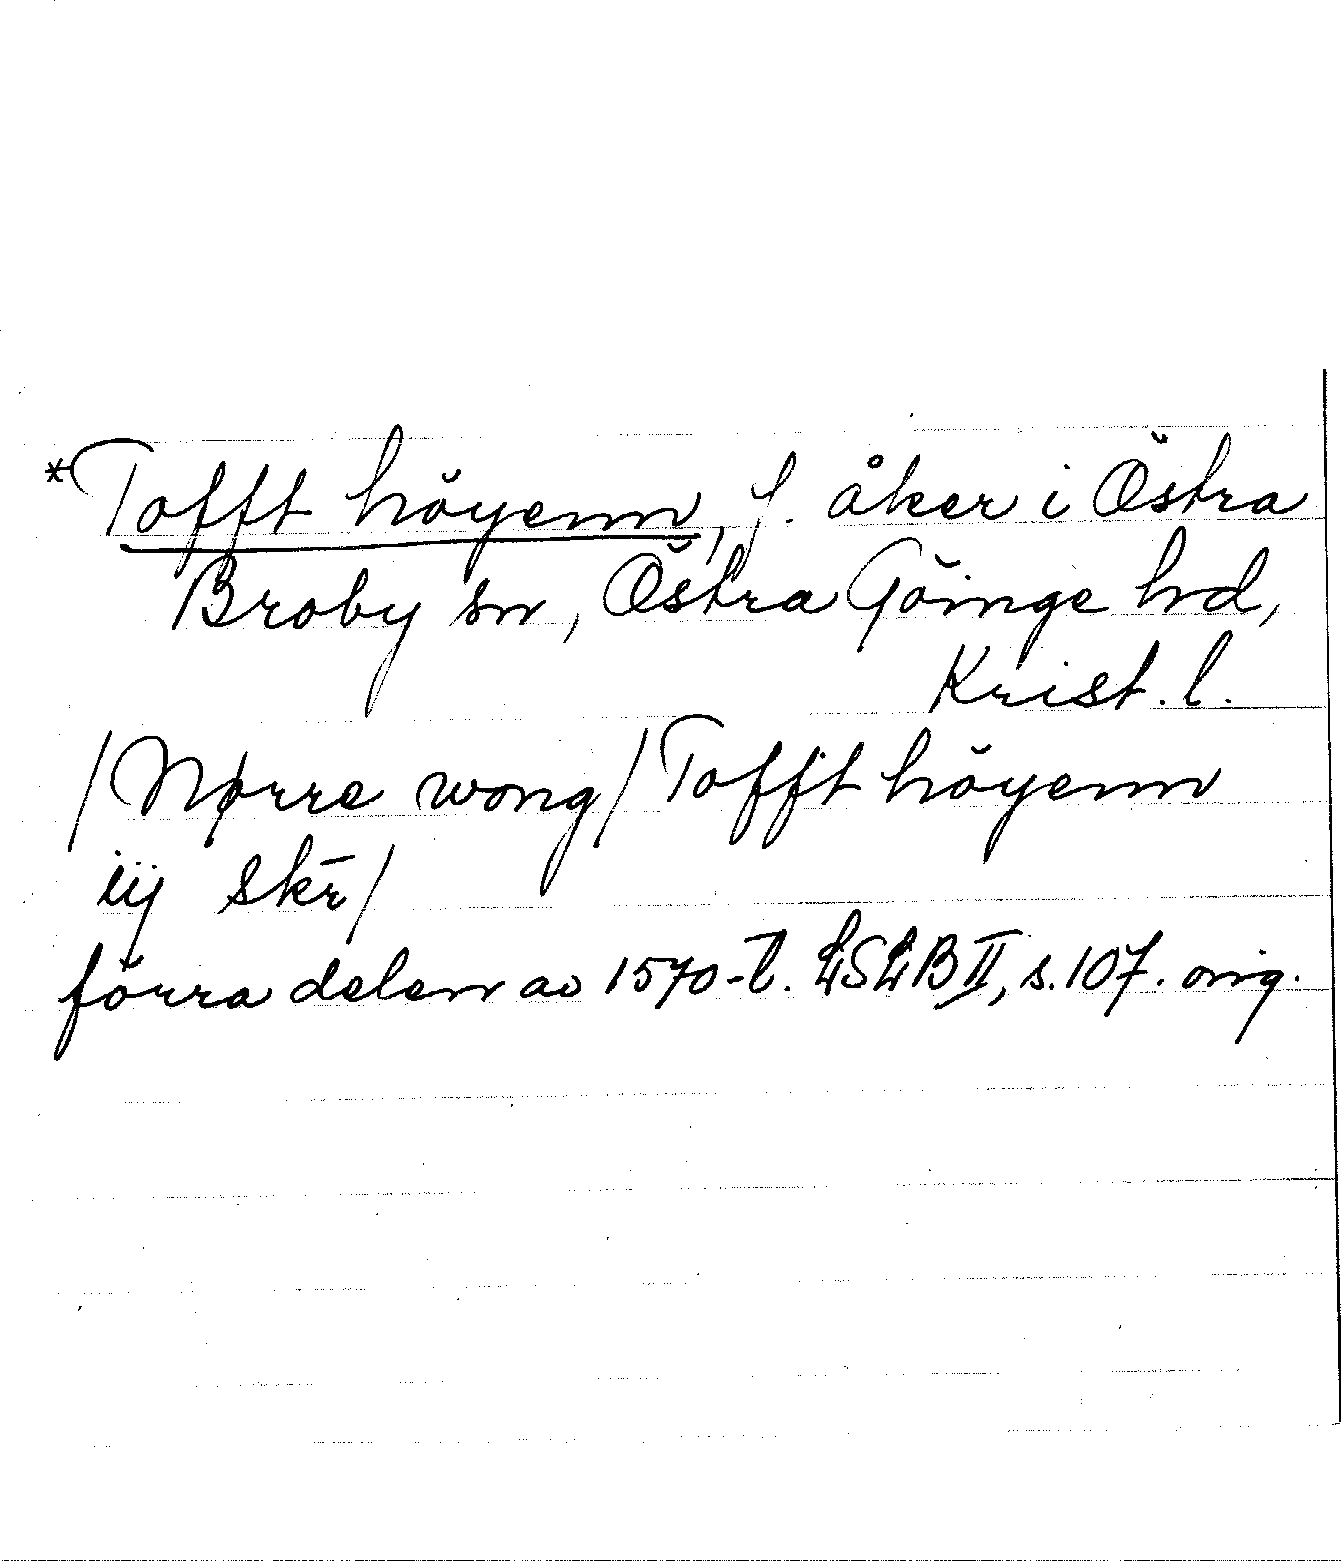 *Tofft höyenn, f. åker i Östra
Broby sn, Östra Göinge hd,
Krist. l.
/Nørre wong/ Tofft höyenn
iij skr̄/
förra delen av 1570-t. LSLB II, s. 107. orig.